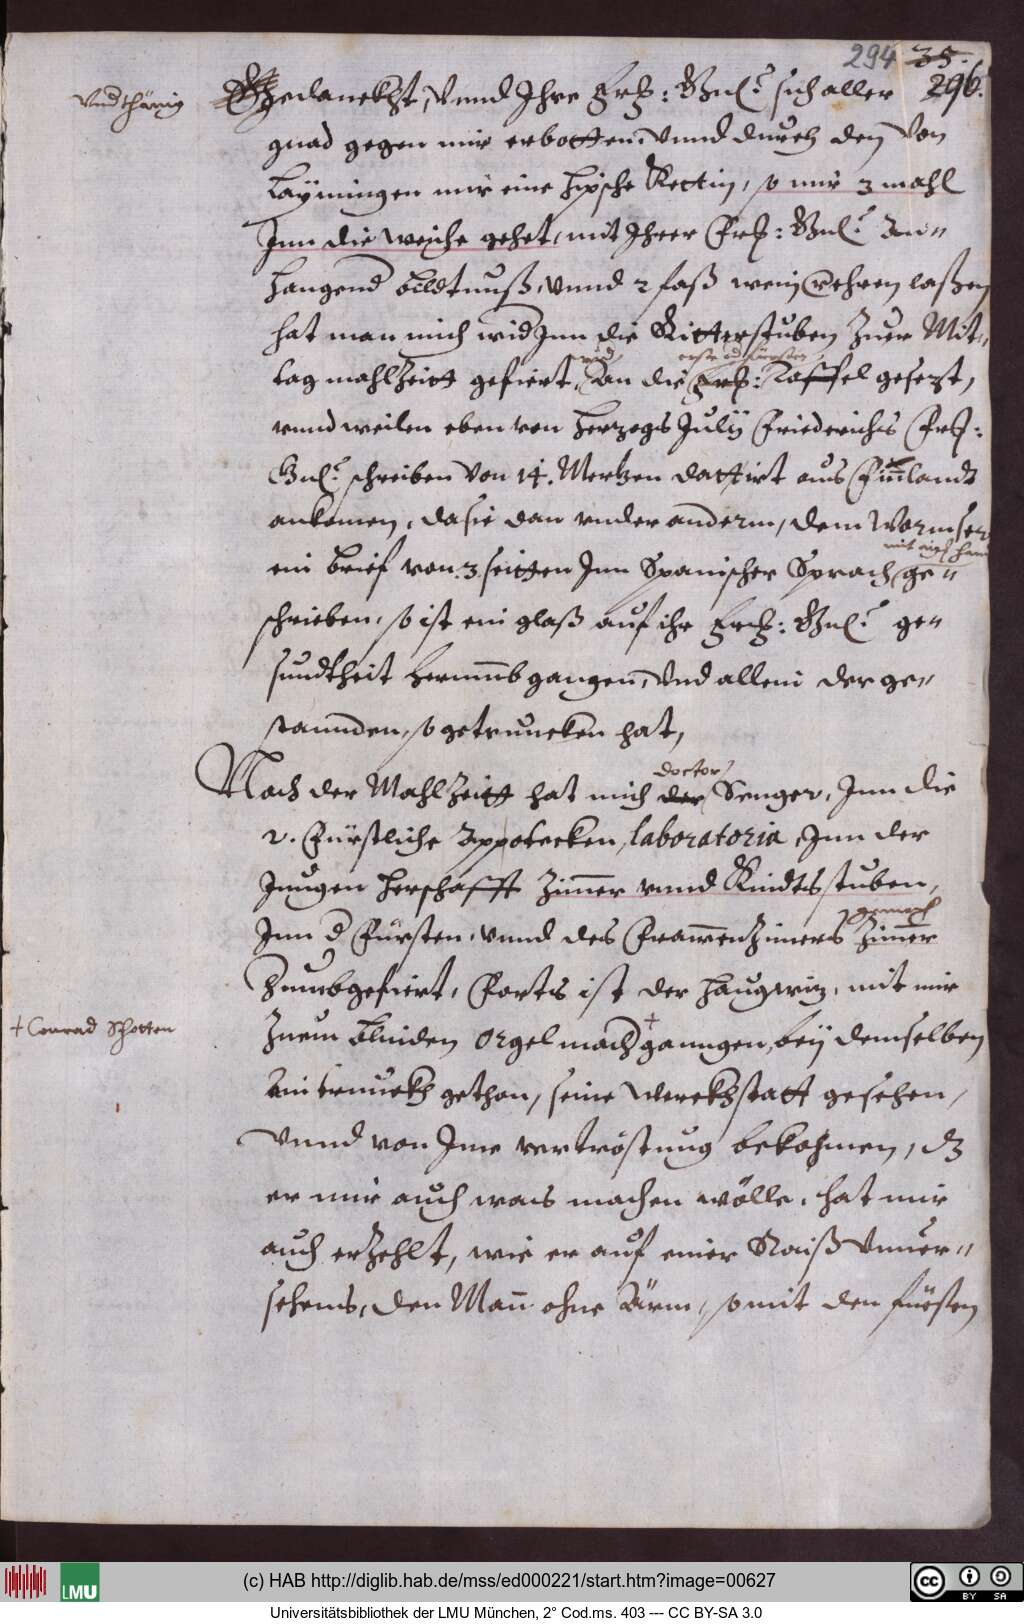 294 35.
296.
Vndthänig
Gedanckht, Vnnd Ihre Frh: Gnl: sich aller
gnad gegen mir erbotten, Vnnd durch den Von
Laymingen mir eine hipsche Kettin, so mir 3 mahl
Inn die weiche gehet, mit Ihrer Frh: Gnl: An=
hangend bildtnuß, vnnd 2 faß wein verehren laßen
hat man mich wid Inn die Ritterstuben Zuer Mit=
tag mahlZeitt gefiert, vnd an die Frh: erste Taffel gesezt,
vnnd weilen eben von Herzogs Julÿ Friederichs Frh:
Gnl: schreiben Von 14. Mertzen dattirt aus Finlandt
ankomen, da sie dan vnder anderm, dem Wormser
mit aigner hand
ein brief von 3 seitten Inn Spanischer Sprach ge=
schrieben, so ist ein glaß auf ihr Frh: Gnl: ge=
sundtheit herumb gangen, Vnd allein der ge=
standen, so getruncken hat,
Nach der MahlZeitt hat mich der doctor Senger, Inn die
2. Fürstliche Appotecken, laboratoria, Inn der
Jungen herschafft Zimer vnnd Kindtsstuben,
Inn d Fürsten, vnnd des FrawenZimers Zimer gemach
Zumbgefiert, Forts ist der Haugwiz, mit mir
+ Conrad Schotten
Zuem blinden Orgelmach + ganngen, beÿ demselben
Ain trunckh gethon, seine Werckhstatt gesehen,
Vnnd von Ime vertröstung bekohmen, dz
er mir auch was machen wölle, hat mir
auch erZehlt, wie er auf einer Raiß Vnuer=
sehens, den Man ohne Ärm, so mit den füesten
(c) HAB http://diglib.hab.de/mss/ed000221/start.htm?image=00627
LMU
cc BY SA
Universitätsbibliothek der LMU München, 2° Cod.ms. 403 --- CC BY-SA 3.0